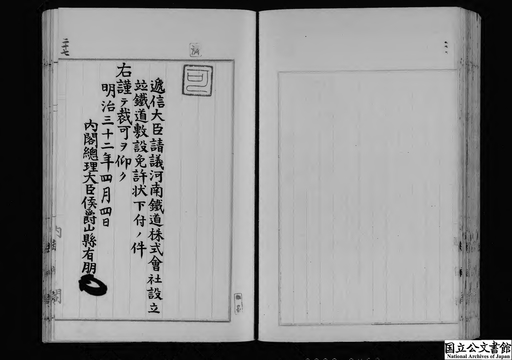 逓信大臣請議河南鐵道株式會社設立
竝鐵道敷設免許狀下付ノ件
右謹テ裁可ヲ仰ク
明治三十二年四月四日
內閣總理大臣侯爵山縣有朋
国立公文書館
National Archives of Japan